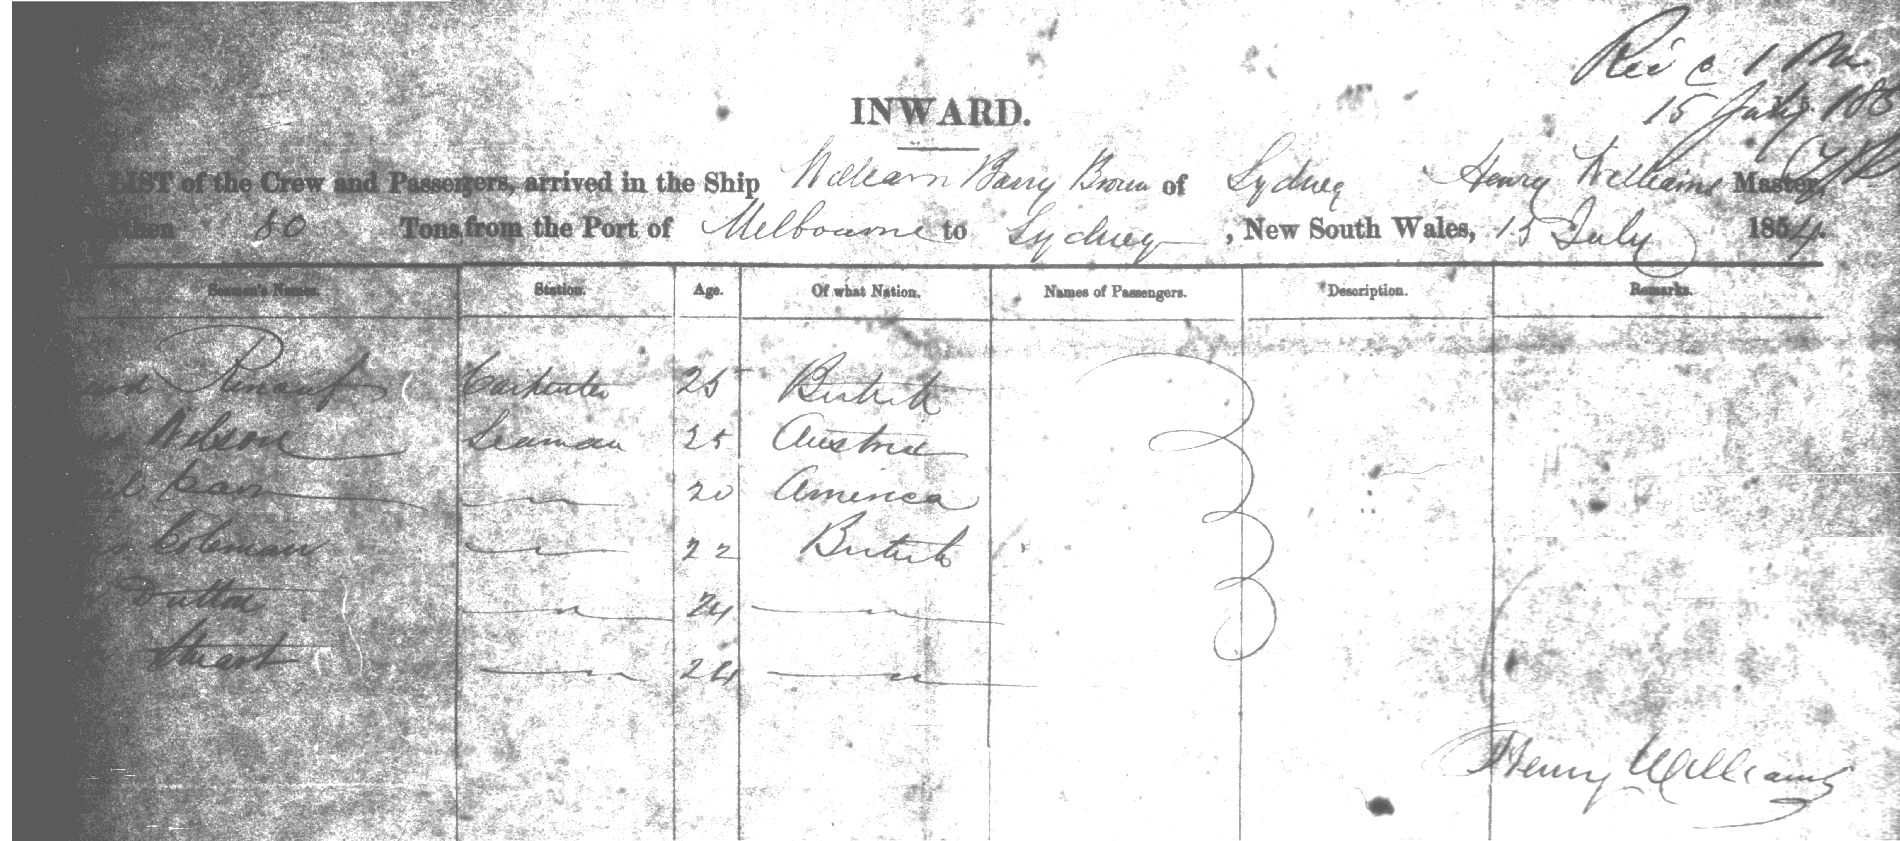 15 July 185
INWARD.
LIST of the Crew and Passengers, arrived in the Ship William Barry Brown of Sydney Henry Williams Master,
then 80 Tons, from the Port of Melbourne to Sydney, New South Wales, 15 July 1854.
Seamen's Names. Station. Age. Of what Nation. Names of Passengers. Description. Remarks.
Carpenter 25 British
Nelson Seaman 25 Austria
20 America
Coleman 22 British
Dutton 24
Stuart 24
Henry Williams